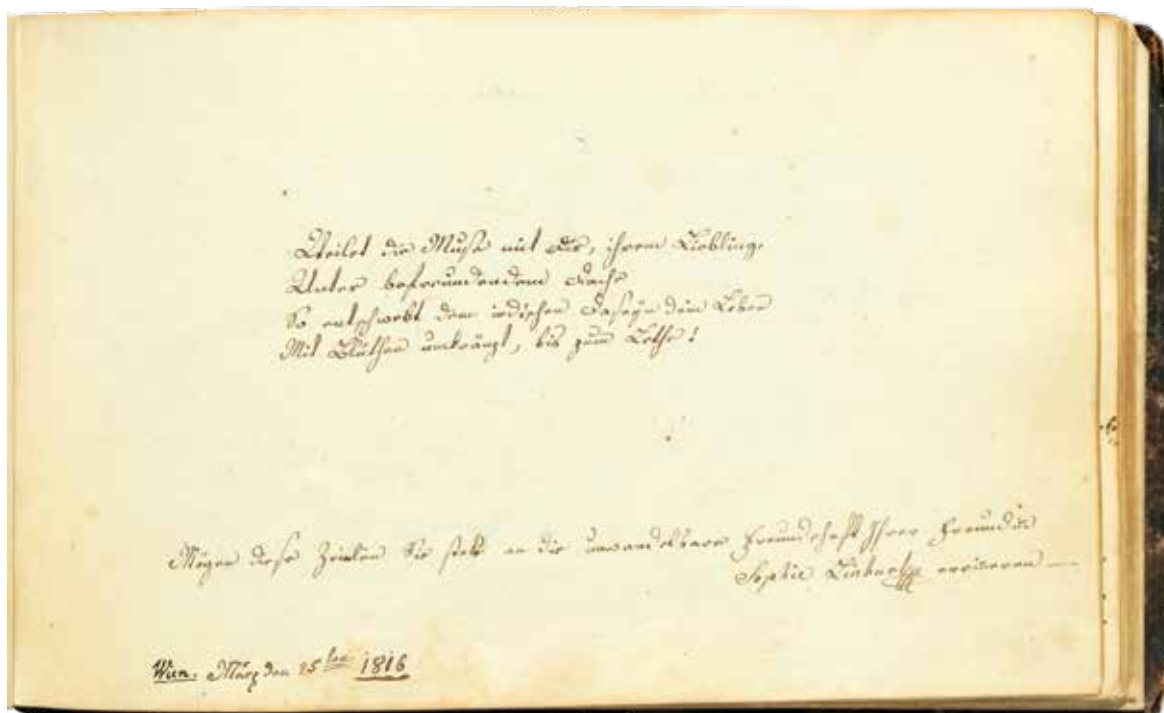 Weilet die Muse mit Dir, ihrem Liebling,
Unter befreundendem Dache
So entschwebt dem irdischen Daseyn dein Leben
Mit Blüthen umkränzt, bis zum Lethe!
Mögen diese Zeilen Sie stets an die unwandelbare Freundschaft Ihrer Freundin
Sophie erinneren —
Wien. März den 25ten 1816